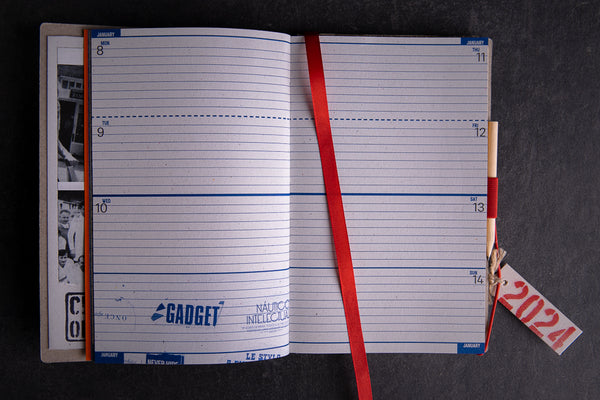 JANUARY
MON
8
TUE
9
WED
10
GADGET
NÁUTICO
INTELECTUAL
JANUARY
NEVER HIDE
LE STYLE
JANUARY
THU
11
FRI
12
SAT
13
SUN
14
JANUARY
2024